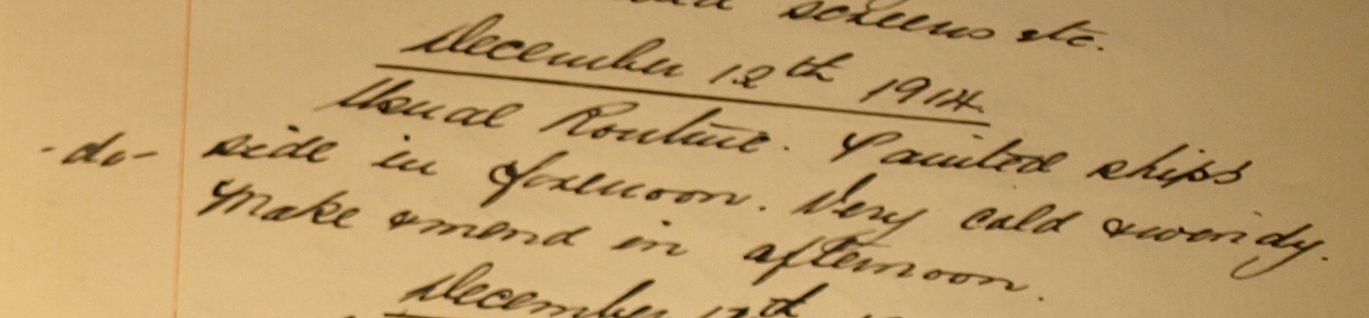 screens etc.
December 12th 1914.
Usual Routine. Painted ships
-do- side in forenoon. Very cold & windy.
Make & mend in afternoon.
December